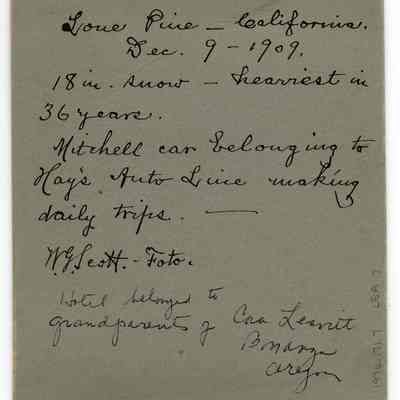 Lone Pine – California.
Dec. 9 – 1909.
18 in. snow – heaviest in
36 years.
Mitchell car belonging to
Hay's Auto Line making
daily trips. —
W.G. Scott. - Foto.
Hotel belonged to
grandparents of Cora Leavitt
Bonanza
Oregon